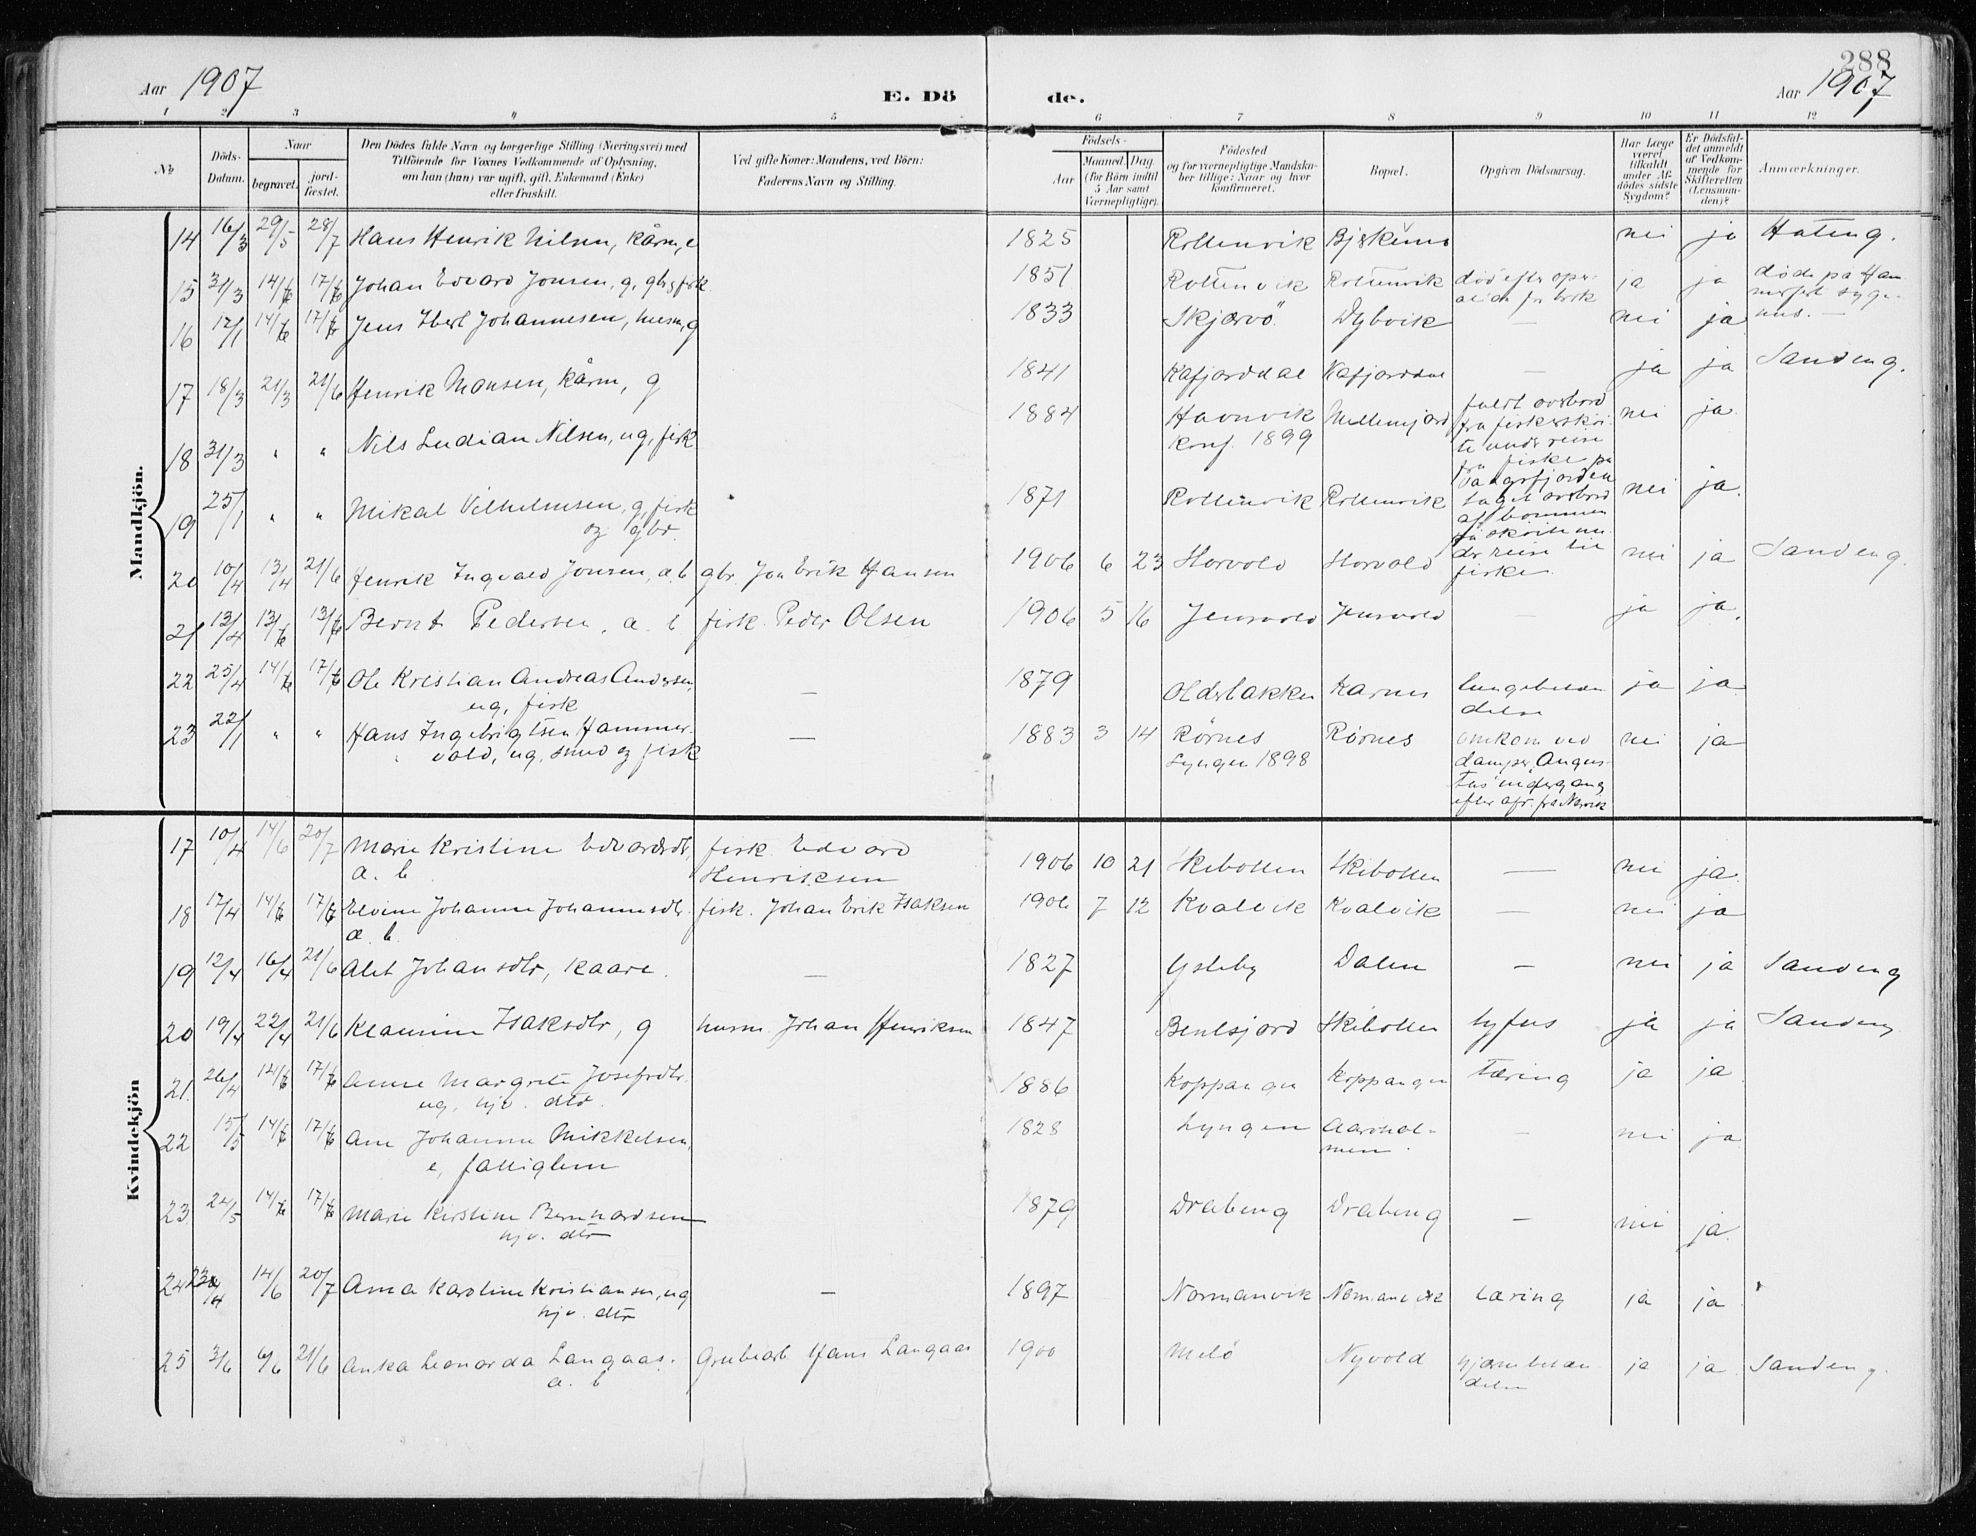 288
Aar 1907 E. Dö de. Aar 1907
1 2 3 4 5 6 7 8 9 10 11 12
No
Döds-Datum.
Naar
begravet.
jord-fæstet.
Den Dödes fulde Navn og borgerlige Stilling (Næringsvei) med
Tilföiende for Voxnes Vedkommende af Oplysning,
om han (hun) var ugift, gift, Enkemand (Enke)
eller fraskilt.
Ved gifte Koner: Mandens, ved Börn:
Faderens Navn og Stilling.
Födsels-
Aar
Maaned. Dag.
(for Börn indtil
5 Aar samt
Værnepligtige).
Födested
og for værnepligtige Mandska-
ber tillige: Naar og hvor
konfirmeret.
Bopæl.
Opgiven Dödsaarsag.
Har Læge
været
tilkaldt
under Af-
dödes sidste
Sygdom?
Er Dödsfal-
det anmeldt
af Vedkom-
mende for
Skifteretten
(Lensman-
den)?
Anmærkninger.
Mandkjön.
14 16/3 29/5 28/7 Hans Henrik Nilsen, kårm, e 1825 Rottenvik nei ja Hateng.
15 31/3 14/6 17/6 Johan Edvard Jonsen, g, gbr, fisk 1851 Rottenvik Rottenvik død efter ope- ja ja døde på Ham
for brok
16 12/1 14/6 17/6 Jens Johannesen, husm, g 1833 Skjærvö Dybvik — nei ja
17 18/3 21/3 21/6 Henrik Monsen, kårm, g 1841 Kafjorddal Kafjorddal — ja ja Sandeng.
18 31/3 " " Nils Ludian Nilsen, ug, fisk 1884 Havnvik nei ja
konf. 1899
faldt overbord
fra fiskerskøi-
te under reise
fra fiske på
19 25/1 " " Mikal Vilhelmsen, g, fisk 1871 Rottenvik Rottenvik nei ja.
og gbr.
taget overbord
af bommen
på skøite un-
der reise til
fiske
20 10/4 13/4 21/6 Henrik Ingvald Jonsen, a. b gbr. Jon Erik Hansen 1906 6 23 Horvold Horvold nei ja Sandeng.
21 13/4 13/6 13/6 Bernt Pedersen, a. b fisk. Peder Olsen 1906 5 16 Jensvold Jensvold — ja ja.
22 25/4 14/6 17/6 Ole Kristian Andreas Andersen, — 1879 Olderbakken Karnes lungebetæn ja ja
ug, fisk delse
23 22/1 " " Hans Ingebrigtsen Hammer- — 1883 3 14 Rørnes Rørnes omkom ved nei ja
vold, ug, smed og fisk Lyngen 1898 damper Augus-
tus' undergang
efter afr. fra Narvik
Kvindekjön
17 10/4 14/6 20/7 Marie Kristine Edvardsdtr, fisk. Edvard 1906 10 21 Skibotten Skibotten — nei ja
a. b. Henriksen
18 17/4 14/6 17/6 Elvine Johanne Johannesdtr. fisk. Johan Erik Isaksen 1906 7 12 Kvalvik Kvalvik — nei ja
a. b.
19 12/4 16/4 21/6 Alet Johansdtr, kaare. — 1827 Dalen — nei ja Sandeng
20 19/4 22/4 21/6 Klamine Isaksdtr, g husm. Johan Henriksen 1847 Bentsjord Skibotten tyfus ja ja Sandeng
21. 26/4 14/6 17/6 Anne Margrete Josefsdtr. 1886 Koppangen Koppangen tæring ja ja
ug. hjv. dtr.
22 15/5 14/6 17/6 Ane Johanne Mikkelsen, 1828 Lyngen Aarohol- — nei ja
e, fattiglem men.
23 24/5 14/6 17/6 Marie Kirstine Bernhardsen 1879 Drabeng Drabeng — nei ja.
hjv. dtr
24 14/6 20/7 Anna Karoline Kristiansen, ug — 1897 Normanvik Normanvik tæring ja ja
hjv. dtr
25 3/6 6/6 21/6 Anka Leonarda Langaas. Grubearb Hans Langaas 1900 Melö Nyvold hjærnebetæn ja ja Sandeng.
a. b delse